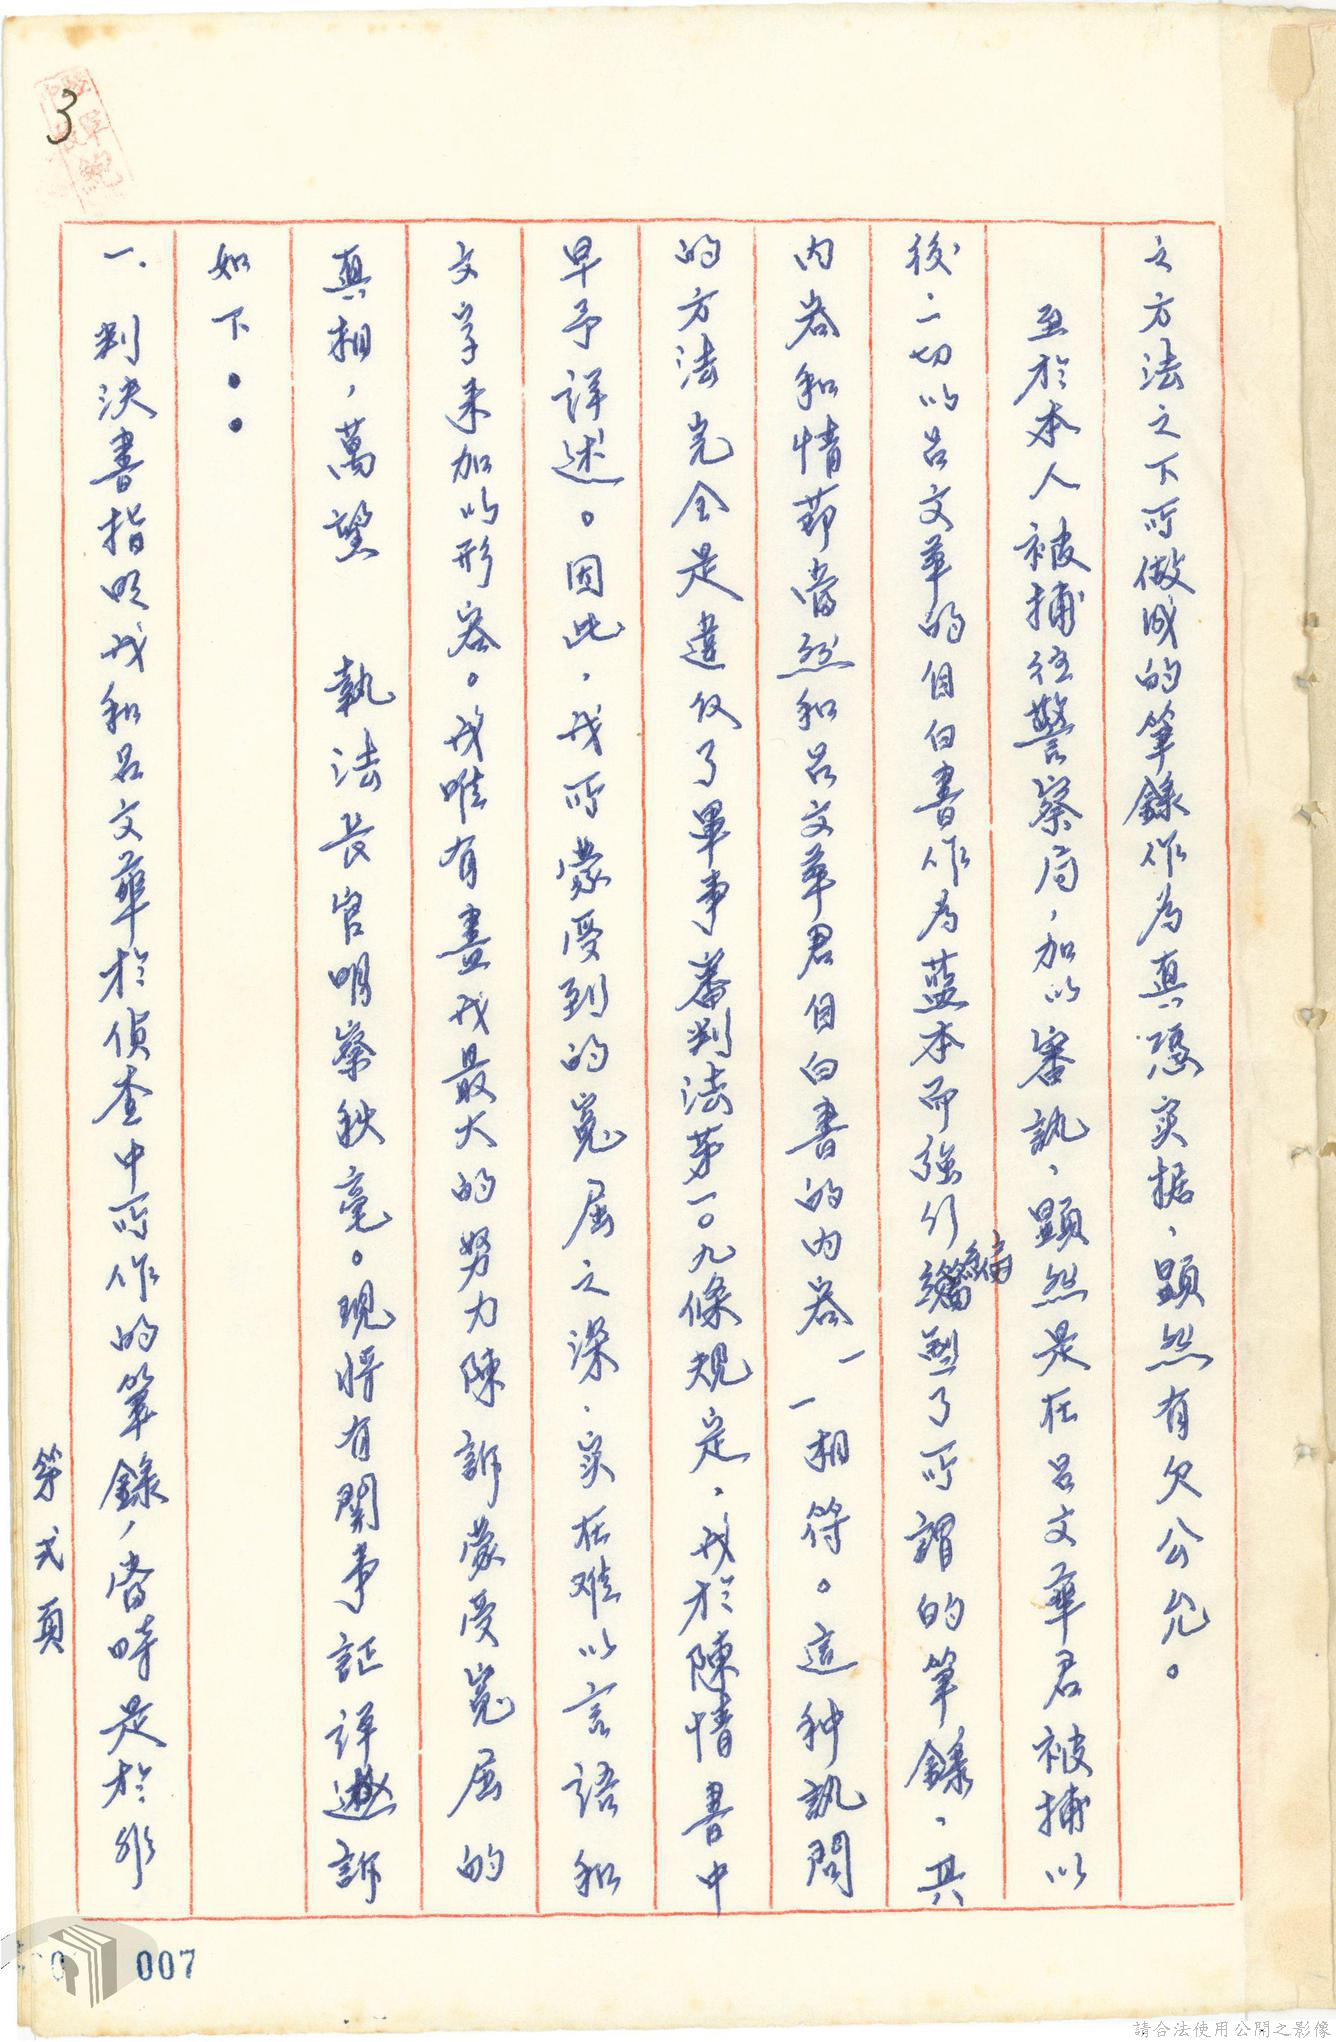 3
之方法之下所做成的筆錄作為真憑实据、顕然有欠公允。
至於本人被捕往警察局,加以審訊、顕然是在呂文華君被捕以
後、一切以呂文華的自白書作為藍本而強行編塑了所謂的筆錄、其
內容和情節當然和呂文華君自白書的內容一一相符。這种訊問
的方法完全是違反了軍事審判法第一〇九條規定、我於陳情書中
早予詳述。因此、我所蒙受到的冤屈之深、实在难以言語和
文字来加以形容。我唯有盡我最大的努力陳訴蒙受冤屈的
真相,萬望 執法長官明察秋毫。現將有関事証詳述訴
如下:
一、判決書指明我和呂文華於偵查中所作的筆錄,當時是於非
第弍頁
007
請合法使用公開之影像